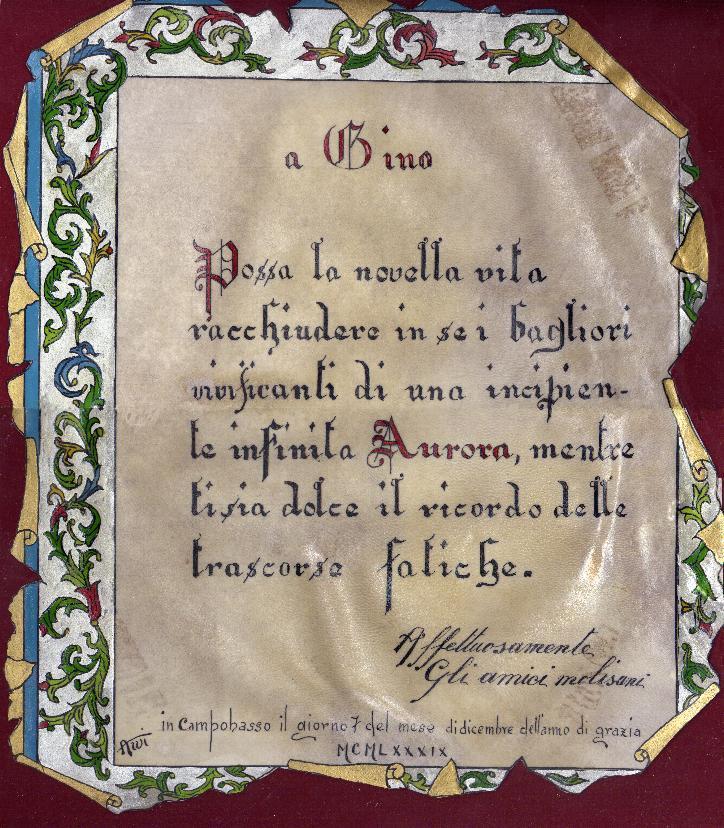 a Gino
Possa la novella vita
racchiudere in se i bagliori
vivificanti di una incipien-
te infinita Aurora, mentre
ti sia dolce il ricordo delle
trascorse fatiche.
Affettuosamente
Gli amici molisani
in Campobasso il giorno 7 del mese di dicembre dell'anno di grazia
MCMLXXXIX